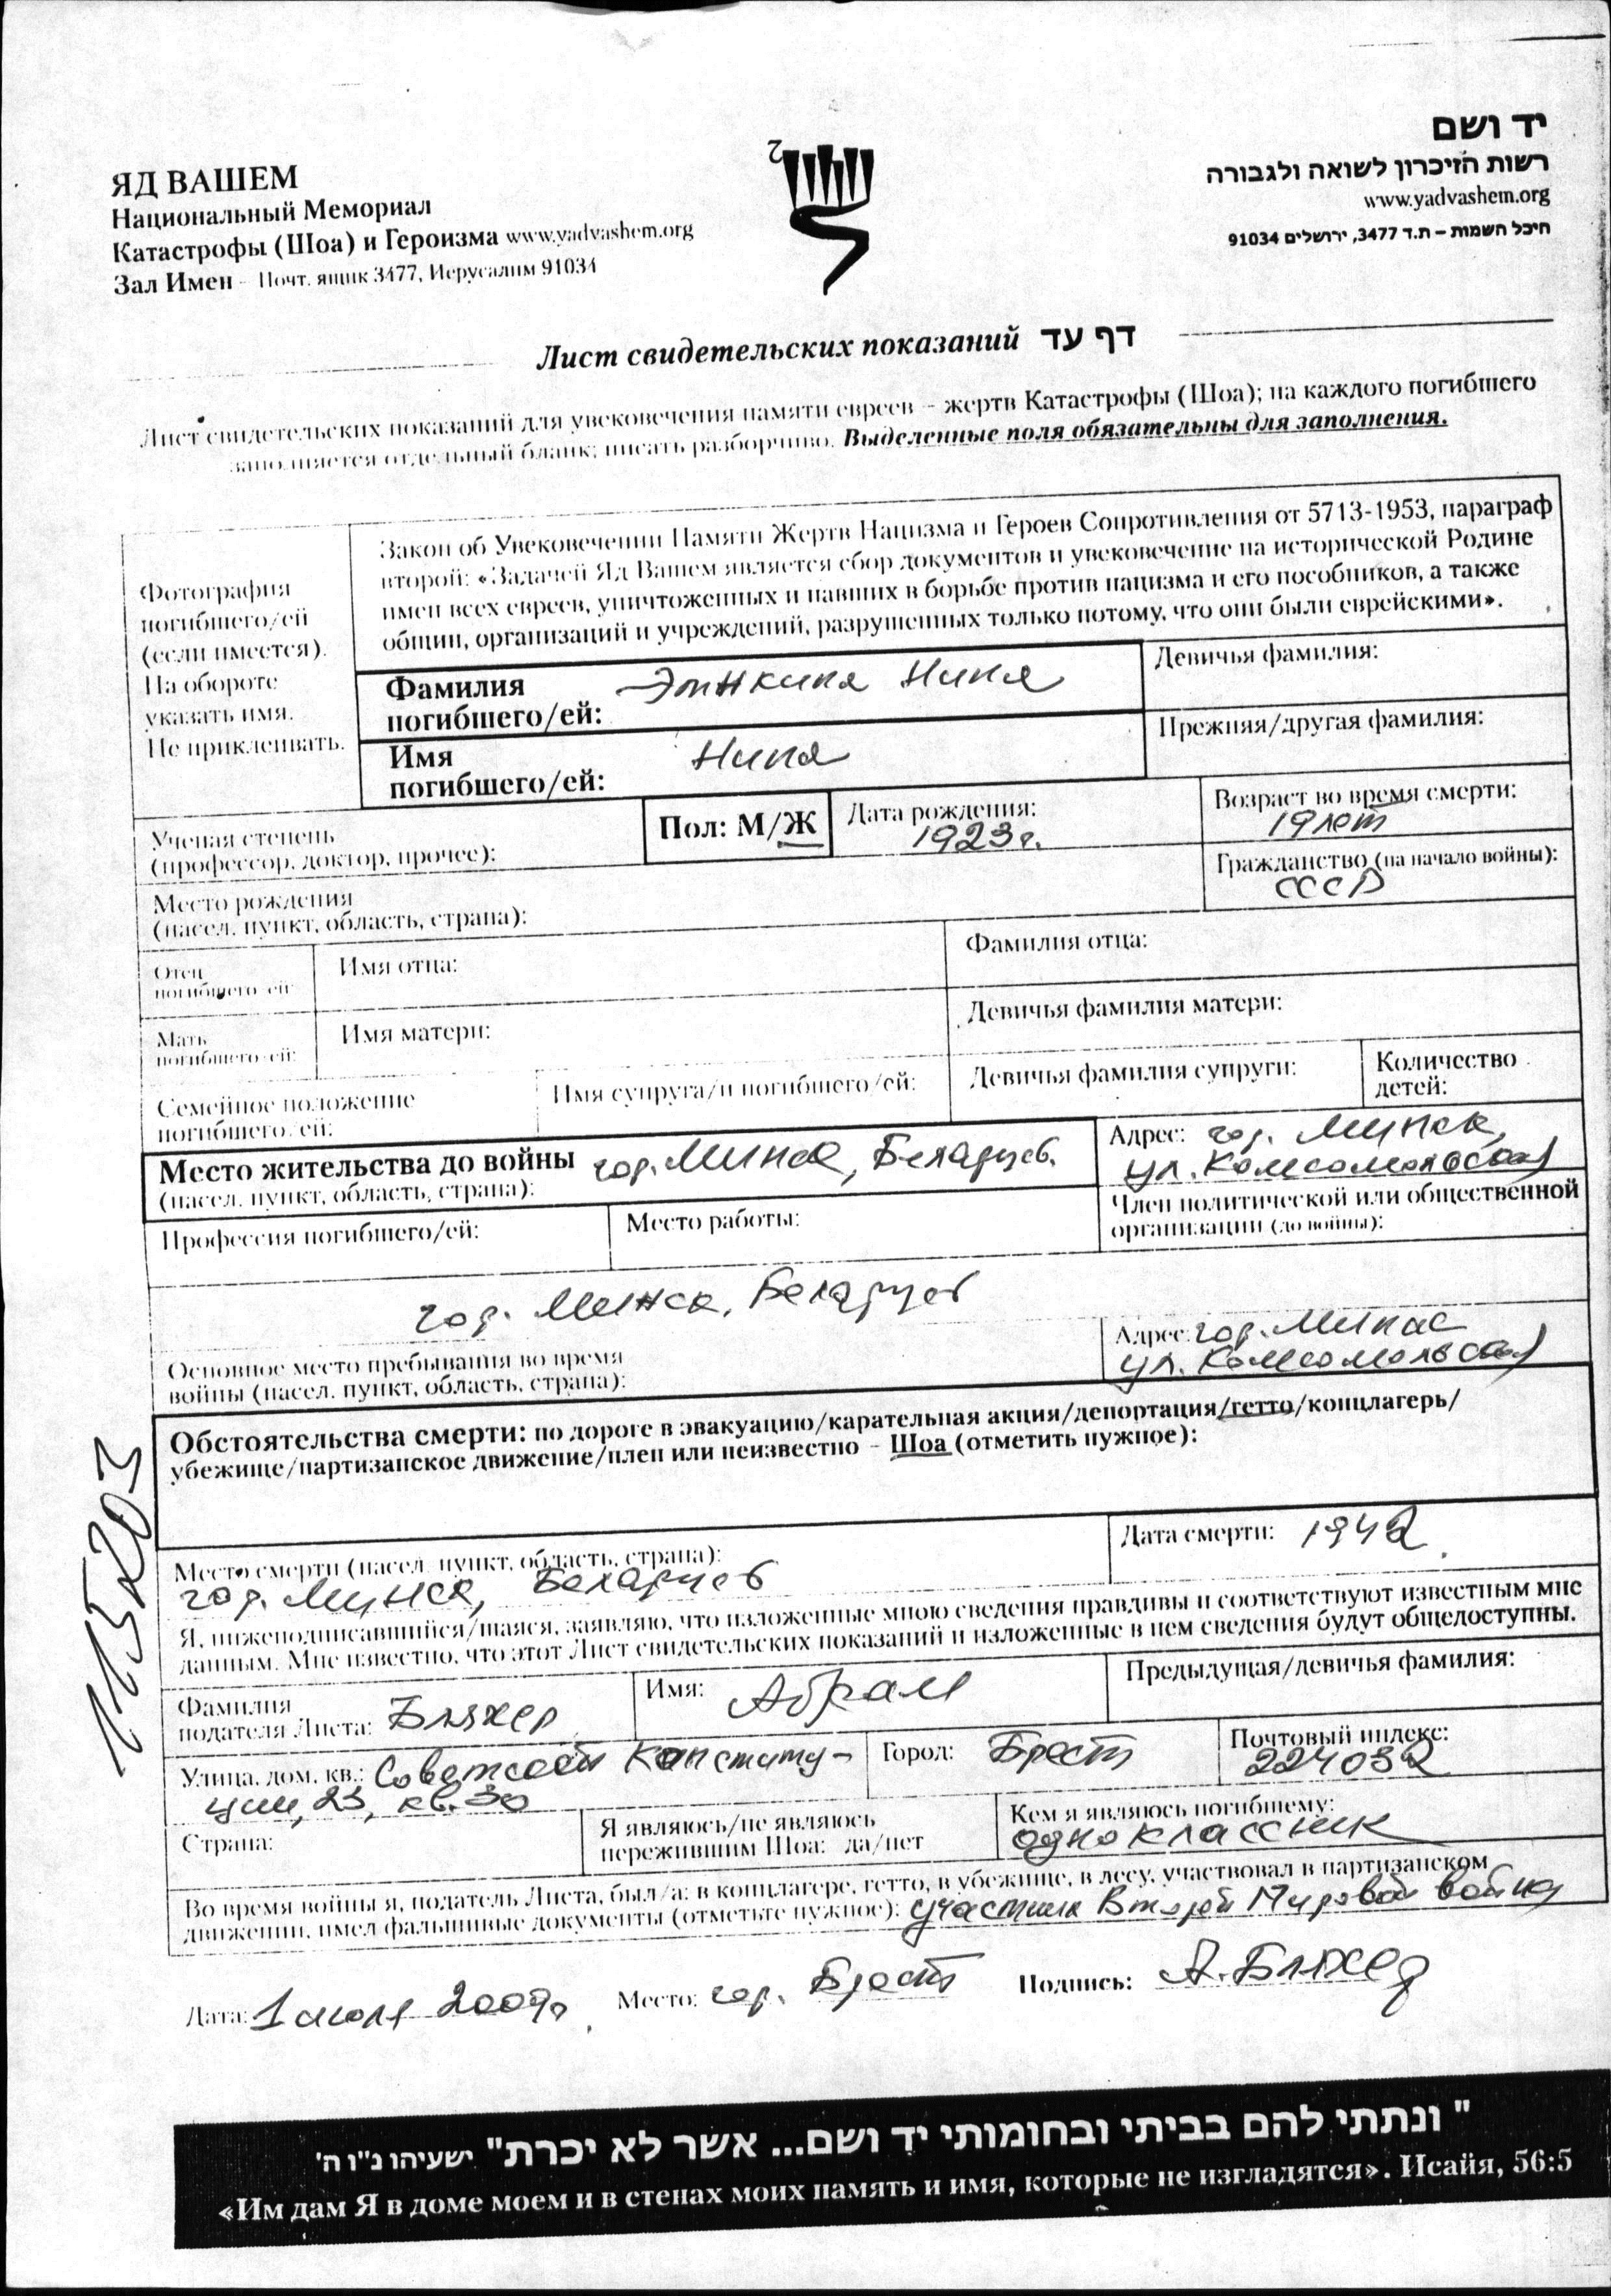 יד ושם
רשות הזיכרון לשואה ולגבורה
www.yadvashem.org
היכל השמות – ת.ד 3477, ירושלים 91034
ЯД ВАШЕМ
Национальный Мемориал
Катастрофы (Шоа) и Героизма www.yadvashem.org
Зал Имен - Почт. ящик 3477, Иерусалим 91034
Лист свидетельских показаний דף עד
Лист свидетельских показаний для увековечения памяти евреев – жертв Катастрофы (Шоа); на каждого погибшего
заполняется отдельный бланк; писать разборчиво. Выделенные поля обязательны для заполнения.
Фотография
погибшего/ей
(если имеется).
На обороте
указать имя.
Не приклеивать.
Закон об Увековечении Памяти Жертв Нацизма и Героев Сопротивления от 5713-1953, параграф
второй: «Задачей Яд Вашем является сбор документов и увековечение на исторической Родине
имен всех евреев, уничтоженных и павших в борьбе против нацизма и его пособников, а также
общин, организаций и учреждений, разрушенных только потому, что они были еврейскими».
Фамилия
погибшего/ей: Нина
Девичья фамилия:
Имя
погибшего/ей: Нина
Прежняя/другая фамилия:
Ученая степень
(профессор, доктор, прочее):
Пол: М/Ж
Дата рождения:
1923г.
Возраст во время смерти:
19 лет
Место рождения
(насел. пункт, область, страна):
Гражданство (на начало войны):
СССР
Отец
погибшего/ей:
Имя отца:
Фамилия отца:
Мать
погибшего/ей:
Имя матери:
Девичья фамилия матери:
Семейное положение
погибшего/ей:
Имя супруга/и погибшего/ей:
Девичья фамилия супруги:
Количество
детей:
Место жительства до войны гор. Минск, Беларусь.
(насел. пункт, область, страна):
Адрес: гор. Минск,
ул. Комсомольская
Профессия погибшего/ей:
Место работы:
Член политической или общественной
организации (до войны):
гор. Минск, Беларусь
Основное место пребывания во время
войны (насел. пункт, область, страна):
Адрес: гор. Минск
ул. Комсомольская
Обстоятельства смерти: по дороге в эвакуацию/карательная акция/депортация/гетто/концлагерь/
убежище/партизанское движение/плен или неизвестно – Шоа (отметить нужное):
115203
Место смерти (насел. пункт, область, страна):
гор. Минск, Беларусь
Дата смерти: 1942
Я, нижеподписавшийся/шаяся, заявляю, что изложенные мною сведения правдивы и соответствуют известным мне
данным. Мне известно, что этот Лист свидетельских показаний и изложенные в нем сведения будут общедоступны.
Фамилия
подателя Листа: Бляхер
Имя: Абрам
Предыдущая/девичья фамилия:
Улица, дом, кв.: Советской Конститу-
ции, 23, кв. 30
Город: Брест
Почтовый индекс:
224032
Страна:
Я являюсь/не являюсь
пережившим Шоа: да/нет
Кем я являюсь погибшему:
одноклассник
Во время войны я, податель Листа, был/а: в концлагере, гетто, в убежище, в лесу, участвовал в партизанском
движении, имел фальшивые документы (отметьте нужное): участник Второй Мировой войны
Дата: 1 июля 2009г. Место: гор. Брест Подпись: А. Бляхер
" ונתתי להם בביתי ובחומותי יד ושם... אשר לא יכרת" ישעיהו נ"ו ה'
«Им дам Я в доме моем и в стенах моих память и имя, которые не изгладятся». Исайя, 56:5